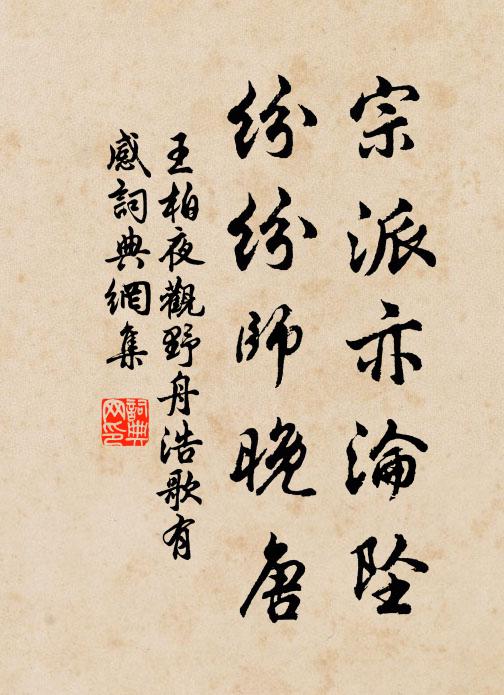 宗派亦淪墜
紛紛師晚唐
王柏夜觀野舟浩歌有
感詞典網集
詞典
网印